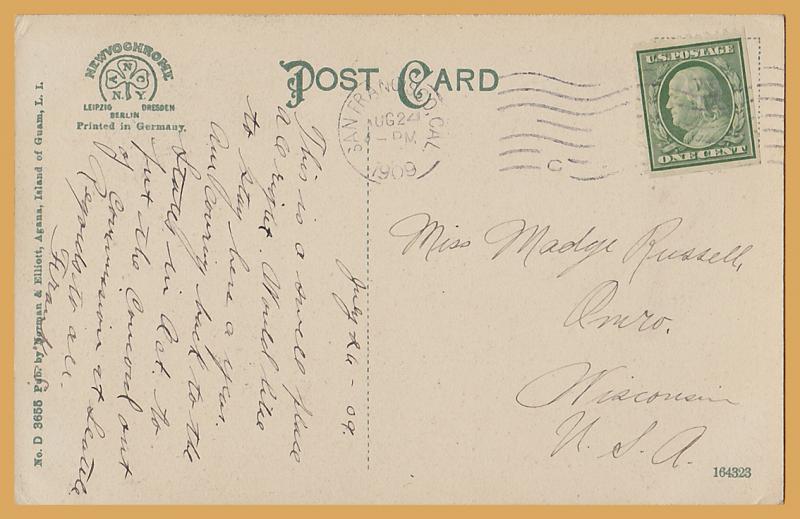 NEWVOCHROME
A N C
N.Y.
LEIPZIG DRESDEN
BERLIN
Printed in Germany.
POST CARD
SAN FRANCISCO, CAL.
AUG 24
4-PM
1909
C
U.S. POSTAGE
ONE CENT
July 26-09.
This is a swell place
all right. Would like
to stay here a year.
Am coming back to the
States in Oct. to
put the Concord out
of Commission at Seattle
Regards to all.
Miss Madge Russell,
Omro.
Wisconsin
U. S. A.
No. D 3655 Pub. by Norman & Elliott, Agana, Island of Guam, L. I.
164323